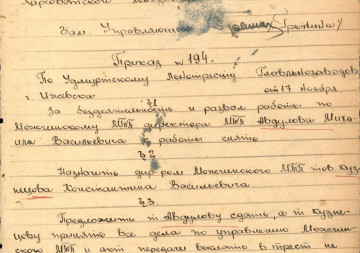 Зам. Управляющего
Приказ №194.
По Удмуртскому Льнотресту Главльнозаводов
г. Ижевска от 17 ноября
§1
За бездеятельность и развал работы по
Можгинскому МТП директора МТП Авдулова Миха-
ила Васильевича с работы снять
§2.
Назначить дир-ром Можгинского МТП тов. Куз-
нецова Константина Васильевича.
§3.
Предложить т. Авдулову сдать, а т. Кузне-
цову принять все дела по управлению Можгин-
ского МТП и акт передачи выслать в трест не